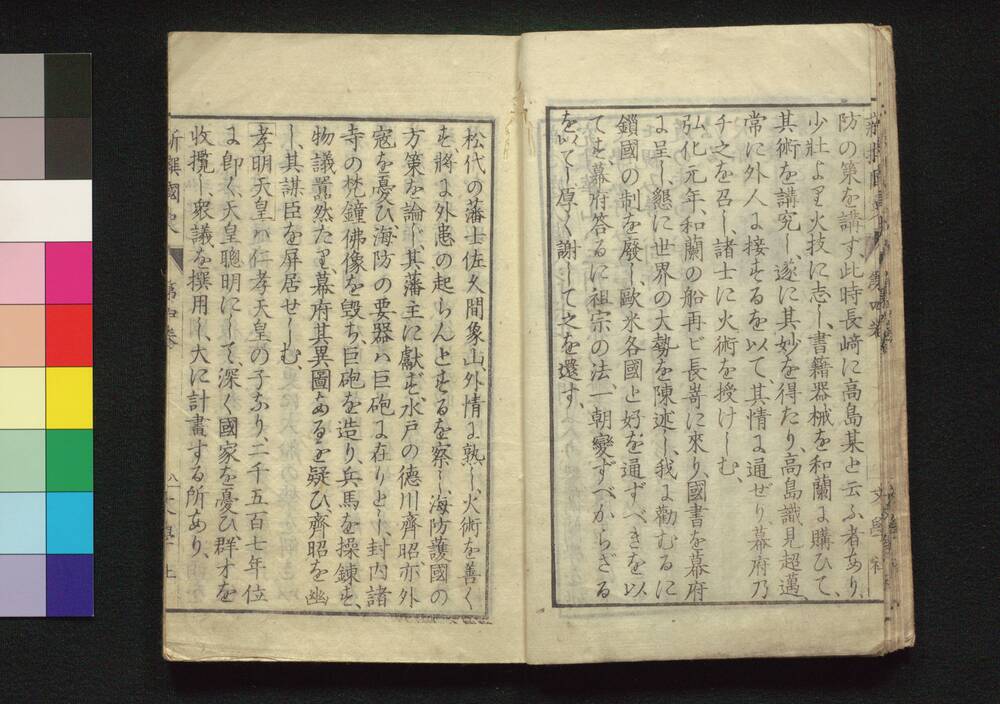 防の策を講す、此時長﨑に高島某と云ふ者あり、
少壯より火技に志し、書籍器械を和蘭に購ひて、
其術を講究し、遂に其妙を得たり、高島識見超邁、
常に外人に接するを以て、其情に通ぜり幕府乃
チ之を召し、諸士に火術を授けしむ、
弘化元年、和蘭の船再ビ長嵜に來り、國書を幕府
に呈し、懇に世界の大勢を陳述し、我に勸むるに
鎖國の制を廢し、歐米各國と好を通ずべきを以
てす、幕府答るに祖宗の法、一朝變ずべからざる
を以てし、厚く謝して之を還す、
松代の藩士佐久間象山、外情に熟し、火術を善く
す、將に外患の起らんとするを察し、海防護國の
方策を論じ、其藩主に獻ず、水戸の德川齊昭亦外
寇を憂ひ、海防の要器ハ巨砲に在りとし、封内諸
寺の梵鐘佛像を毀ち、巨砲を造り、兵馬を操錬す、
物議囂然たり、幕府其異圖あるを疑ひ、齊昭を幽
し、其謀臣を屏居せしむ、
孝明天皇ハ仁孝天皇の子なり、二千五百七年位
に卽く、天皇聰明にして、深く國家を憂ひ、群才を
收攬し、衆議を撰用し、大に計畫する所あり、
新撰國史 第四卷
文學社